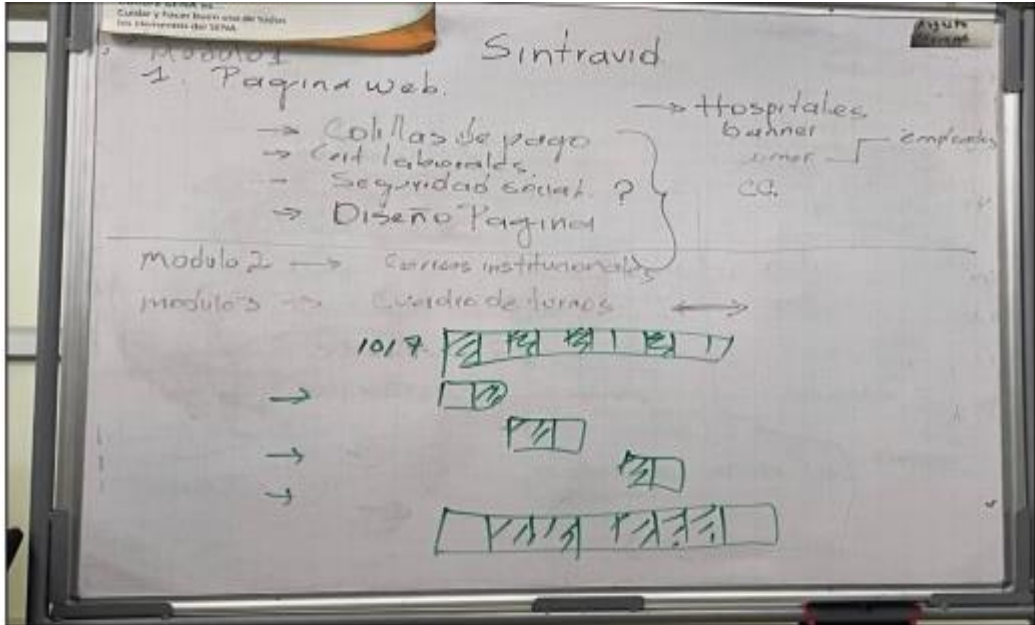 Cuidar y hacer buen uso de todos
los elementos del SENA
Sintravid
Modulo 1
1. Pagina web.
→ Colillas de pago
→ Cert laborales.
→ Seguridad social. ?
→ Diseño Pagina
→ Hospitales
banner
empleados
CC.
modulo 2 → Correos institucionales
modulo 3 → Cuadro de turnos